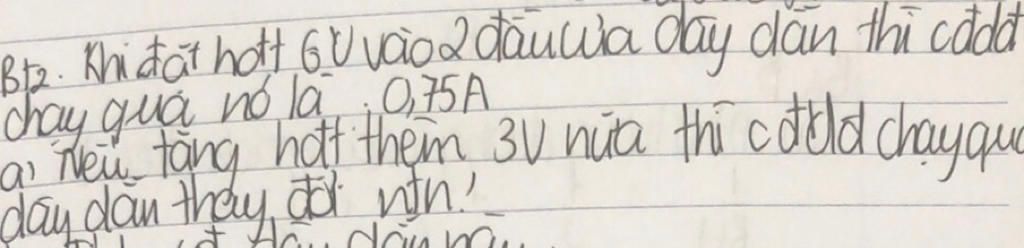 Bt2. Khi đặt hđt 6V vào 2 đầu của dây dẫn thì cđdđ
chạy qua nó là : 0,75A
a) Nếu tăng hđt thêm 3V nữa thì cđdđ chạy qua
dây dẫn thay đổi ntn!
dây dẫn này